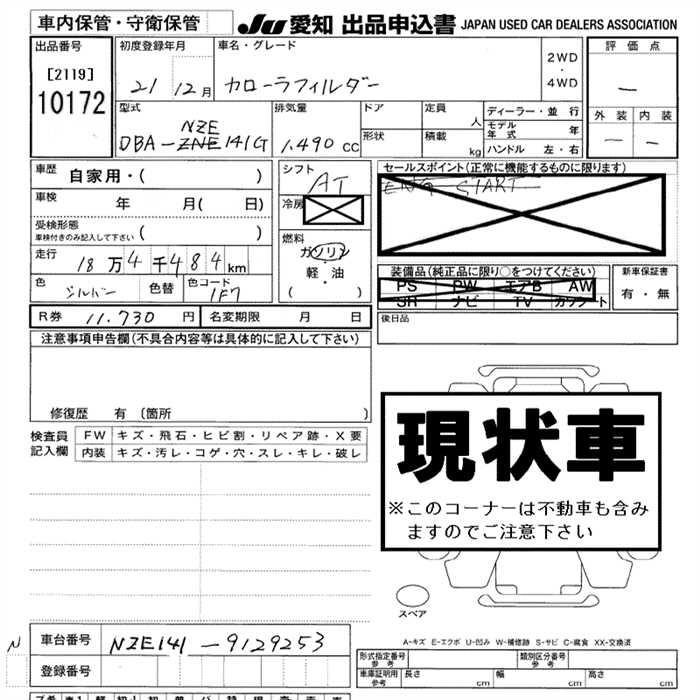 車内保管・守衛保管 JU 愛知 出品申込書 JAPAN USED CAR DEALERS ASSOCIATION
出品番号 [2119] 10172
初度登録年月 21 12月
車名・グレード カローラフィルダー
2WD・4WD
評価点 —
外装 — 内装 —
型式 DBA-ZNE NZE 141G
排気量 1.490 cc
ドア 形状
定員 人
積載 kg
ディーラー・並行
モデル年式 年
ハンドル 左・右
車歴 自家用・( )
車検 年 月( 日)
受検形態 車検付きのみ記入して下さい ( )
走行 18万4千484km
色 シルバー 色替 色コード 1F7
シフト AT
冷房
燃料 ガソリン・軽・油 ( )
セールスポイント(正常に機能するものに限ります)
ENG START
装備品(純正品に限り○をつけてください)
PS PW エアB AW
SR ナビ TV カワシート
新車保証書 有・無
R券 11.730 円 名変期限 月 日
後日品
注意事項申告欄(不具合内容等は具体的に記入して下さい)
修復歴 有(箇所 )
検査員記入欄
FW キズ・飛石・ヒビ割・リペア跡・X要
内装 キズ・汚レ・コゲ・穴・スレ・キレ・破レ
現状車
※このコーナーは不動車も含み
ますのでご注意下さい
スペア
A-キズ E-エクボ U-凹み W-補修跡 S-サビ C-腐食 XX-交換済
N
車台番号 NZE141-9129253
登録番号
形式指定番号 参考 類別区分番号 参考
車庫証明用 参考 長さ cm 幅 cm 高さ cm